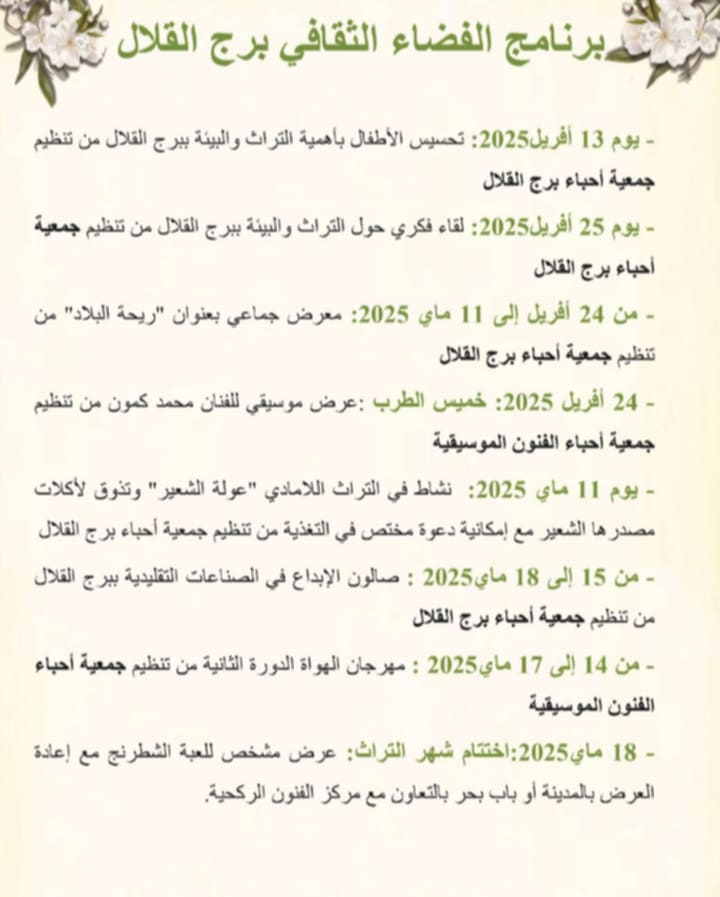 برنامج الفضاء الثقافي برج القلال
- يوم 13 أفريل2025: تحسيس الأطفال بأهمية التراث والبيئة ببرج القلال من تنظيم
جمعية أحباء برج القلال
- يوم 25 أفريل2025: لقاء فكري حول التراث والبيئة ببرج القلال من تنظيم جمعية
أحباء برج القلال
- من 24 أفريل إلى 11 ماي 2025: معرض جماعي بعنوان "ريحة البلاد" من
تنظيم جمعية أحباء برج القلال
- 24 أفريل 2025: خميس الطرب :عرض موسيقي للفنان محمد كمون من تنظيم
جمعية أحباء الفنون الموسيقية
- يوم 11 ماي 2025: نشاط في التراث اللامادي "عولة الشعير" وتذوق لأكلات
مصدرها الشعير مع إمكانية دعوة مختص في التغذية من تنظيم جمعية أحباء برج القلال
- من 15 إلى 18 ماي2025 : صالون الإبداع في الصناعات التقليدية ببرج القلال
من تنظيم جمعية أحباء برج القلال
- من 14 إلى 17 ماي2025 : مهرجان الهواة الدورة الثانية من تنظيم جمعية أحباء
الفنون الموسيقية
- 18 ماي2025:اختتام شهر التراث: عرض مشخص للعبة الشطرنج مع إعادة
العرض بالمدينة أو باب بحر بالتعاون مع مركز الفنون الركحية.